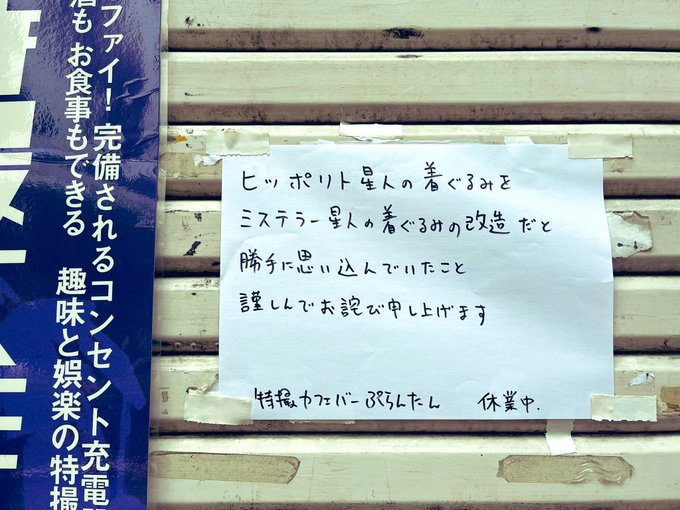 ヒッポリト星人の着ぐるみを
ミステラー星人の着ぐるみの改造だと
勝手に思い込んでいたこと
謹しんでお詫び申し上げます
特撮カフェバーぷらんたん 休業中.
ファイ!完備されるコンセント充電
酒も お食事もできる 趣味と娯楽の特撮